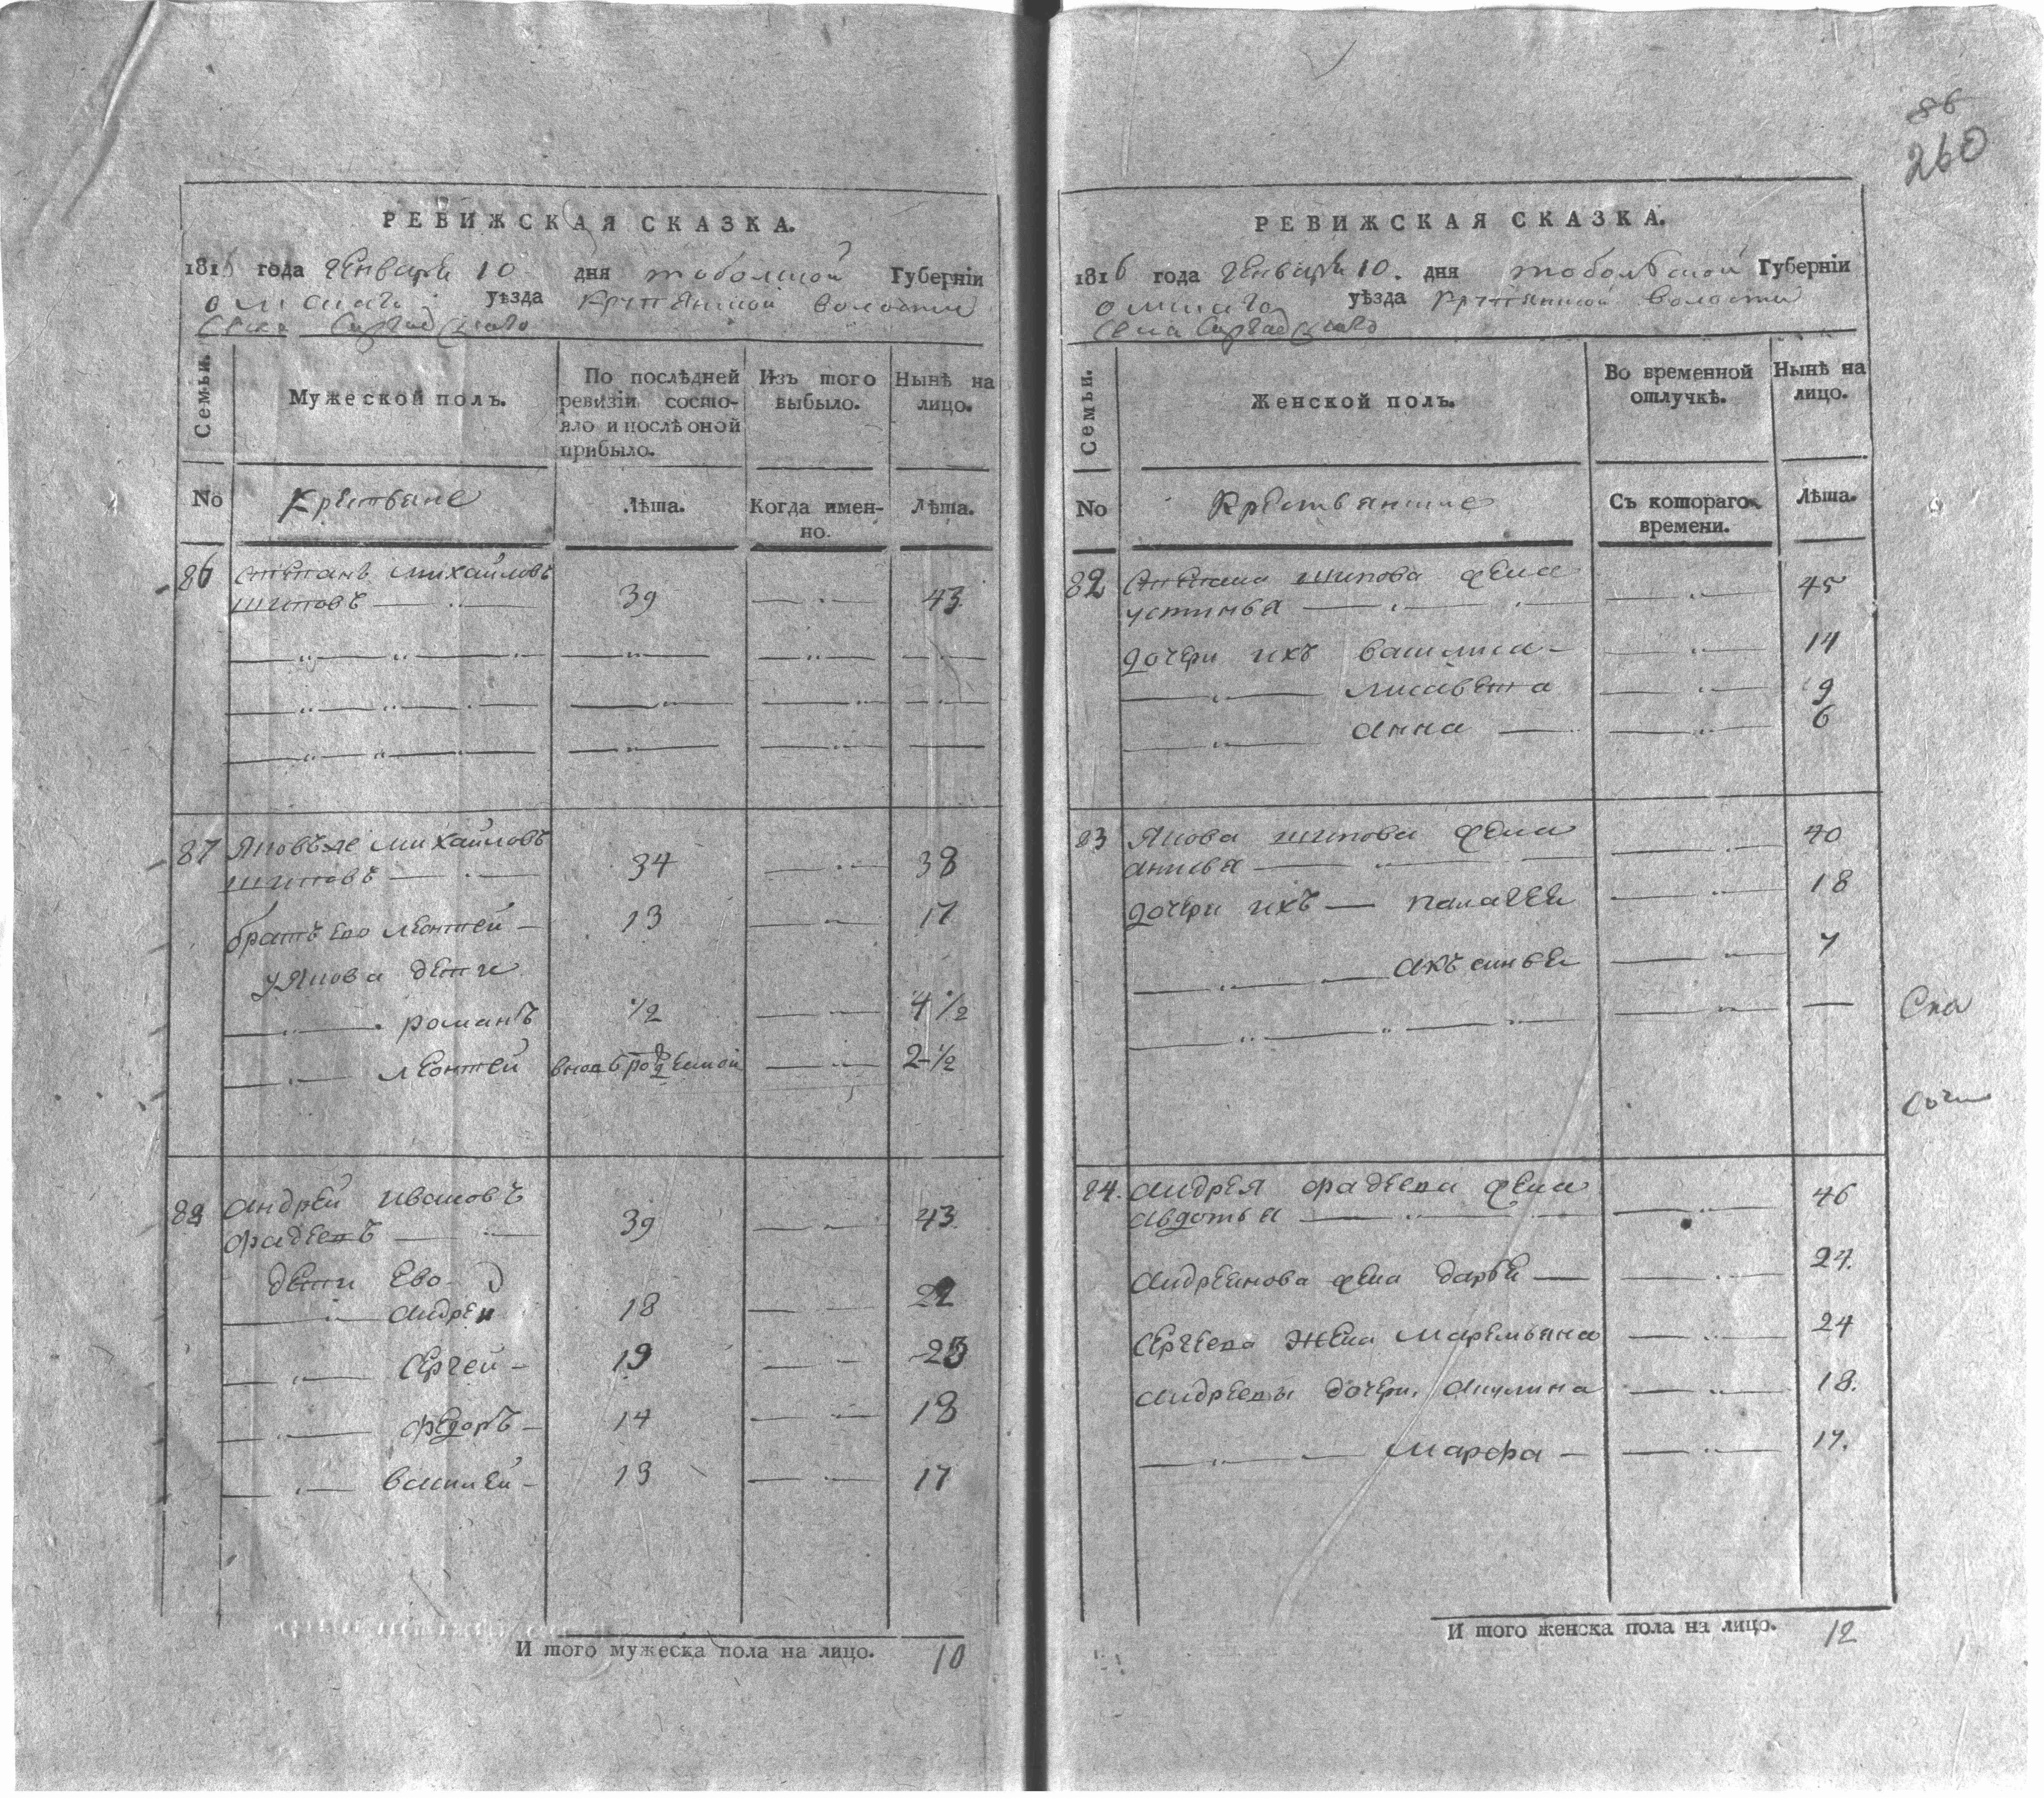 РЕВИЖСКАЯ СКАЗКА.
1816 года генваря 10 дня тобольской Губернїи
омскаго уѣзда волости
Села
Семьи.
Мужеской полъ.
По послѣдней ревизїи состо-
яло и послѣ оной
прибыло.
Изъ того
выбыло.
Нынѣ на
лицо.
No
Крестьяне
Лѣта.
Когда имен-
но.
Лѣта.
86 Степанъ Михайловъ
Шиповъ 39 43.
87 Яковъ Михайловъ
Шиповъ 34 38
братъ Ево Леонтей 13 17
у Якова дети
романъ 1/2 4 1/2
Леонтей вновь рожденной 2 1/2
88 Андрей Ивановъ
фадеевъ 39 43.
дети Ево
Андреи 18 22
Сергей 19 23
Федоръ 14 18
василей 13 17
И того мужеска пола на лицо. 10
86
260
РЕВИЖСКАЯ СКАЗКА.
1816 года генваря 10. дня тобольской Губернїи
омскаго уѣзда волости
Села
Семьи.
Женской полъ.
Во временной
отлучкѣ.
Нынѣ на
лицо.
No
Крестьянские
Съ котораго
времени.
Лѣта.
82 Степана Шипова жена
устинья 45
дочери ихъ василиса 14
лисавета 9
анна 6
83 Якова шипова жена
анисья 40
дочери ихъ палагеи 18
акъсиньи 7
Ска
84. андрея фадеева жена
авдотья 46
андреинова жена дарьи 24.
Сергеева жена маремьяна 24
андреевы дочери, акулина 18.
марфа 17.
И того женска пола на лицо. 12